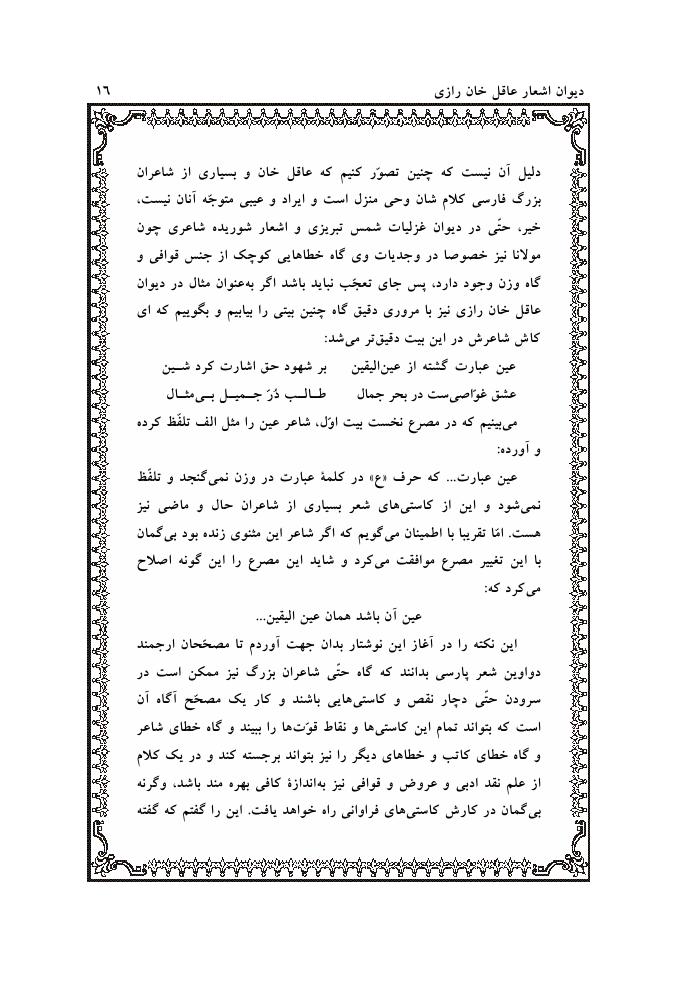 دیوان اشعار عاقل خان رازی ۱۶
دلیل آن نیست که چنین تصوّر کنیم که عاقل خان و بسیاری از شاعران
بزرگ فارسی کلام شان وحی منزل است و ایراد و عیبی متوجّه آنان نیست،
خیر، حتّی در دیوان غزلیات شمس تبریزی و اشعار شوریده شاعری چون
مولانا نیز خصوصا در وجدیات وی گاه خطاهایی کوچک از جنس قوافی و
گاه وزن وجود دارد، پس جای تعجّب نباید باشد اگر به‌عنوان مثال در دیوان
عاقل خان رازی نیز با مروری دقیق گاه چنین بیتی را بیابیم و بگوییم که ای
کاش شاعرش در این بیت دقیق‌تر می‌شد:
عین عبارت گشته از عین‌الیقین بر شهود حق اشارت کرد شــین
عشق غوّاصی‌ست در بحر جمال طــالــب دُرّ جــمیــل بــی‌مثــال
می‌بینیم که در مصرع نخست بیت اوّل، شاعر عین را مثل الف تلفّظ کرده
و آورده:
عین عبارت... که حرف «ع» در کلمهٔ عبارت در وزن نمی‌گنجد و تلفّظ
نمی‌شود و این از کاستی‌های شعر بسیاری از شاعران حال و ماضی نیز
هست. امّا تقریبا با اطمینان می‌گویم که اگر شاعر این مثنوی زنده بود بی‌گمان
با این تغییر مصرع موافقت می‌کرد و شاید این مصرع را این گونه اصلاح
می‌کرد که:
عین آن باشد همان عین الیقین...
این نکته را در آغاز این نوشتار بدان جهت آوردم تا مصحّحان ارجمند
دواوین شعر پارسی بدانند که گاه حتّی شاعران بزرگ نیز ممکن است در
سرودن حتّی دچار نقص و کاستی‌هایی باشند و کار یک مصحّح آگاه آن
است که بتواند تمام این کاستی‌ها و نقاط قوّت‌ها را ببیند و گاه خطای شاعر
و گاه خطای کاتب و خطاهای دیگر را نیز بتواند برجسته کند و در یک کلام
از علم نقد ادبی و عروض و قوافی نیز به‌اندازهٔ کافی بهره مند باشد، وگرنه
بی‌گمان در کارش کاستی‌های فراوانی راه خواهد یافت. این را گفتم که گفته